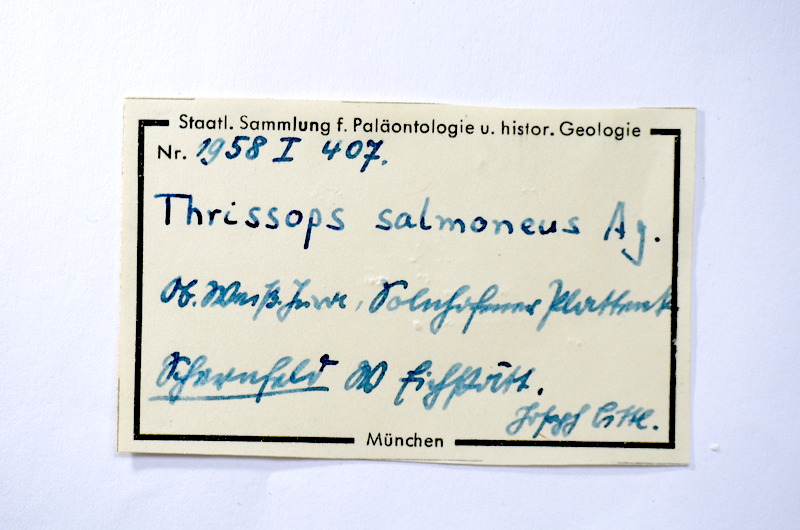 Staatl. Sammlung f. Paläontologie u. histor. Geologie
Nr. 1958 I 407.
Thrissops salmoneus Ag.
Ob. Weiß. Jura, Solnhofener Plattenk.
Schernfeld W Eichstätt.
Joseph
München